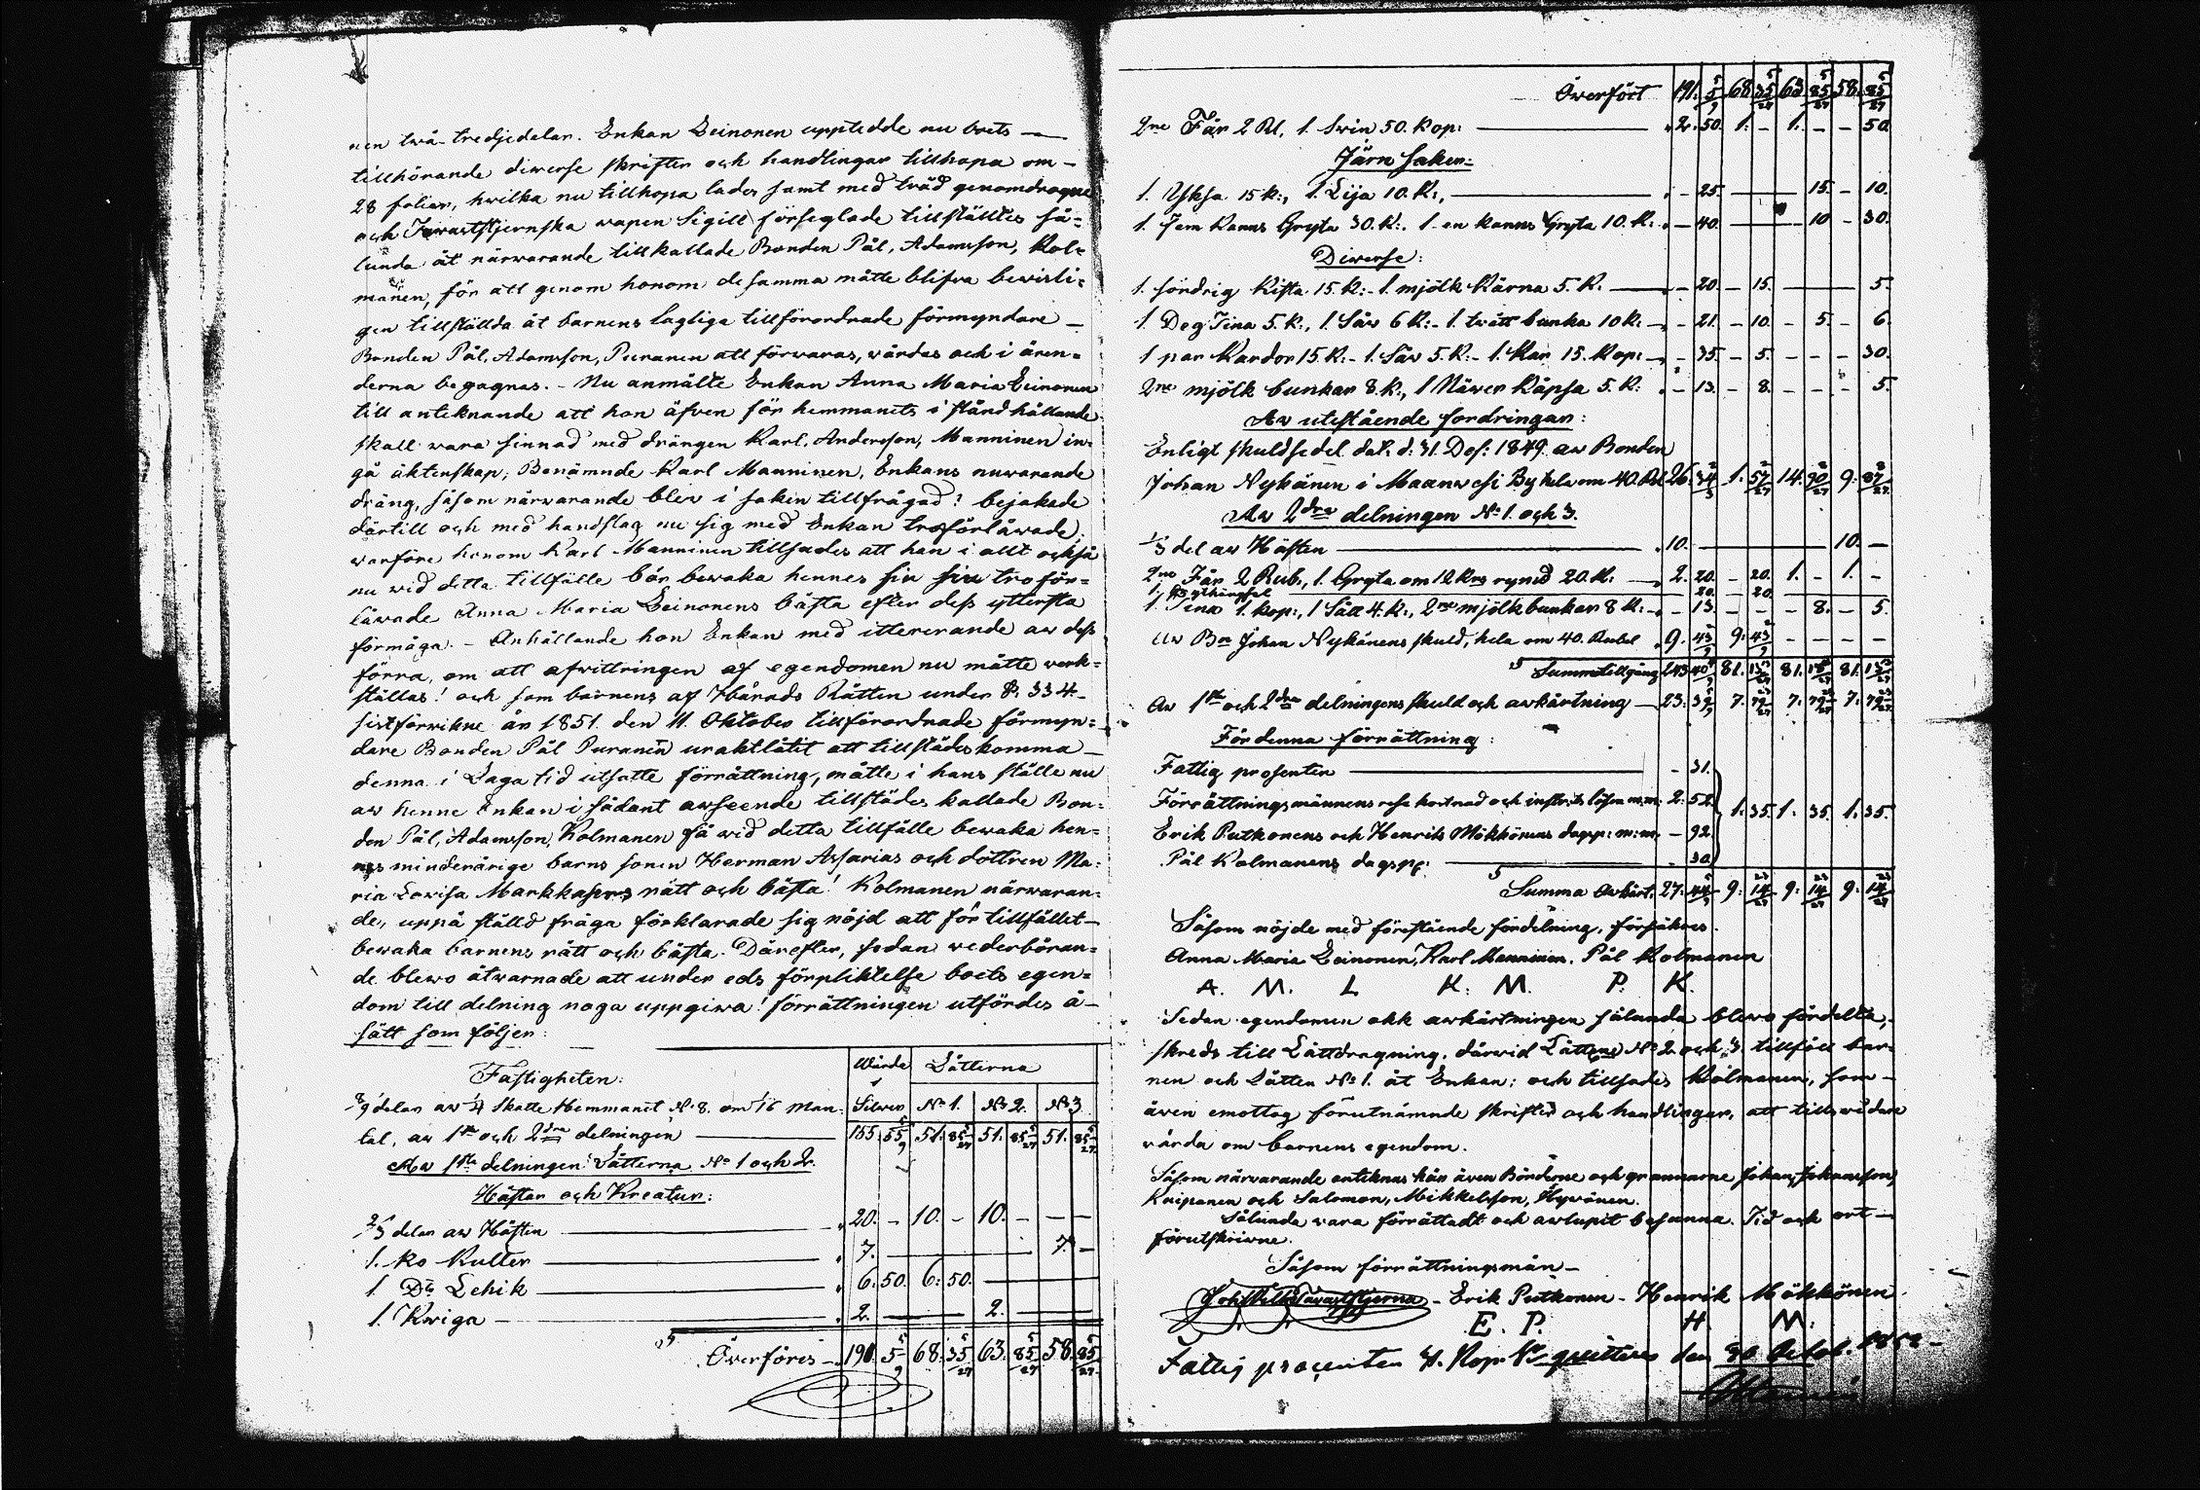 nen twå-tredjedelar. Enkan Leinonen upptedde nu boets
tillhörande diwerse skrifter och handlingar tillhopa om
28 folier, hwilka nu tillhopa lades samt med tråd genomdragne
och Tawaststjernska wapen Sigill förseglade tillställtes så-
lunda åt närwarande tillkallade Bonden Pål, Adamsson, Kol-
manen, för att genom honom desamma måtte blifwa bewisli-
gen tillställda åt barnens lagliga tillförordnade förmyndare
Bonden Pål, Adamsson, Puranen att förwaras, wårdas och i ären-
derna begagnas. - Nu anmälte Enkan Anna Maria Leinonen
till anteknande att hon äfven för hemmanets i ståndhållande
skall wara sinnad med drängen Karl. Andersson, Manninen in-
gå äktenskap; Benämnde Karl Manninen, Enkans nuwarande
dräng, såsom närwarande blev i saken tillfrågad! bejakade
därtill och med handslag nu sig med Enkan troförlåwade;
warföre honom Karl Manninen tillsades att han i allt också
nu wid detta tillfälle bör bewaka hennes sin sin troför-
låwade Anna Maria Leinonens bästa efter dess yttersta
förmåga. - Anhållande hon Enkan med ittererande aw dess
förra, om att afwittringen af egendomen nu måtte werk-
ställas! och som barnens af Härads Rätten under §. 334
sistförwikne år 1851. den 11 Oktober tillförordnade förmyn-
dare Bonden Pål Puranen uraktlåtit att tillstädeskomma
denna i Laga tid utsatte förrättning, måtte i hans ställe nu
aw henne Enkan i sådant awseende tillstädes kallade Bon-
den Pål, Adamsson, Kolmanen få wid detta tillfälle bewaka hen-
nes minderårige barns sonen Herman Assarias och dottren Ma-
ria Lowisa Markkasens rätt och bästa! Kolmanen närwaran-
de, uppå ställd fråga förklarade sig nöjd att för tillfället
bewaka barnens rätt och bästa. Därefter, sedan wederböran-
de blewo åtwarnade att under eds förpliktelse boets egen-
dom till delning noga uppgiwa! förrättningen utfördes å
sätt som följer:
Wärde Låtterna
Fastigheten:
8/9 delar aw 1/4 Skatte Hemmanet No 8. om 1/6 Man- Silwer No 1. No 2. No 3
tal, aw 1sta och 2dra delningen 155. 55 5/9 51. 85 5/27 51. 85 5/27 51. 85 5/27
Aw 1sta delningen Låtterna No 1 och 2.
Hästar och Kreatur:
2/3 delar aw Hästen 20. - 10. - 10. - - -
1. ko Kulter 7. 7. -
1 Do Lehik 6. 50. 6. 50.
1. Kwiga 2. 2.
Överföres 191. 5 5/9 68. 35 5/27 63. 85 5/27 58. 85 5/27
Överfört 191. 5 5/9 68. 35 5/27 63. 85 5/27 58. 85 5/27
2ne Får 2 Rl, 1. Swin 50. Kop: 2. 50. 1. - 1. - - 50.
Järn saker:
1. Yksa 15 k:, 1. Lija 10. K:, - 25. 15. - 10.
1. Fem Kanns Gryta 30. K:. 1. en kanns Gryta 10. K: - 40. 10 - 30.
Diwerse:
1. fördrig Kista 15 K:- 1. mjölk Kärna 5. K. - 20. - 15. 5.
1. Deg Tina 5. K., 1. Såw 6 K:- 1. twätt bunka 10 K: - 21. - 10. - 5. - 6.
1 par Kardor 15. K:- 1. Såw 5. K:- 1. Kar 15. Kop: - 35. - 5. - - - 30.
2ne mjölk bunkar 8. K:, 1 Näwer Käpsa 5. K: - 13. - 8. - - - 5.
Aw utestående fordringar:
Enligt skuldsedel dat. d: 31. Des: 1849. aw Bonden
Johan Nykänen i Maanwesi By hela om 40. Rbl
Aw 2dra delningen No 1. och 3.
1/3 del aw Hästen 10. 10. -
2ne Får 2 Rub., 1. Gryta om 12 Krs rymd 20. K: 2. 20. - 20. 1. - 1. -
1. Tina 1. kop:, 1 Sått 4. K:, 2ne mjölkbunkar 8 K: - 13. - - - 8. - 5.
Aw Bn Johan Nykänens skuld, hela om 40. Rubel 9. 43 9. 43 - - - -
Summa tillgång
Aw 1sta och 2dra delningens skuld och awkärtning
För denna förrättning:
Fattig prosenten - 31.
Förrättningsmännens rese kostnad och lösen m:m: 2. 52.
Erik Putkonens och Henrik Mökkönens dagp: m:m: - 92. 1. 35. 1. 35. 1. 35.
Pål Kolmanens dagspg: - 30.
Summa Awkärt:
Såsom nöjde med förestående fördelning, försäkres.
Anna Maria Leinonen, Karl Manninen. Pål Kolmanen
A. M. L K. M. P. K.
Sedan egendomen okk awkärtningen sålunda blewo fördelta,
skreds till Lättdragning, därwid Lätterne No 2. och 3. tillföll bar-
nen och Låtten No 1. åt Enkan: och tillsades Kolmanen, som
även emottog förutnämnde skrifter och handlingar, att tillswidare
wårda om barnens egendom.
Såsom närwarande anteknas här även Bönderne och grannarne Johan, Johansson,
Knipanen och Salomon, Mikkelsson, Hywönen.
Sålunda wara förrättadt och awlupit besanna. Tid och ort
förutskriwne.
Såsom förrättningsmän
Tawaststjerna - Erik Putkonen - Henrik Mökkönen
E. P. H. M.
Fattig procenten 31. Kop. Sr quitteras den 30 Octob. 1852